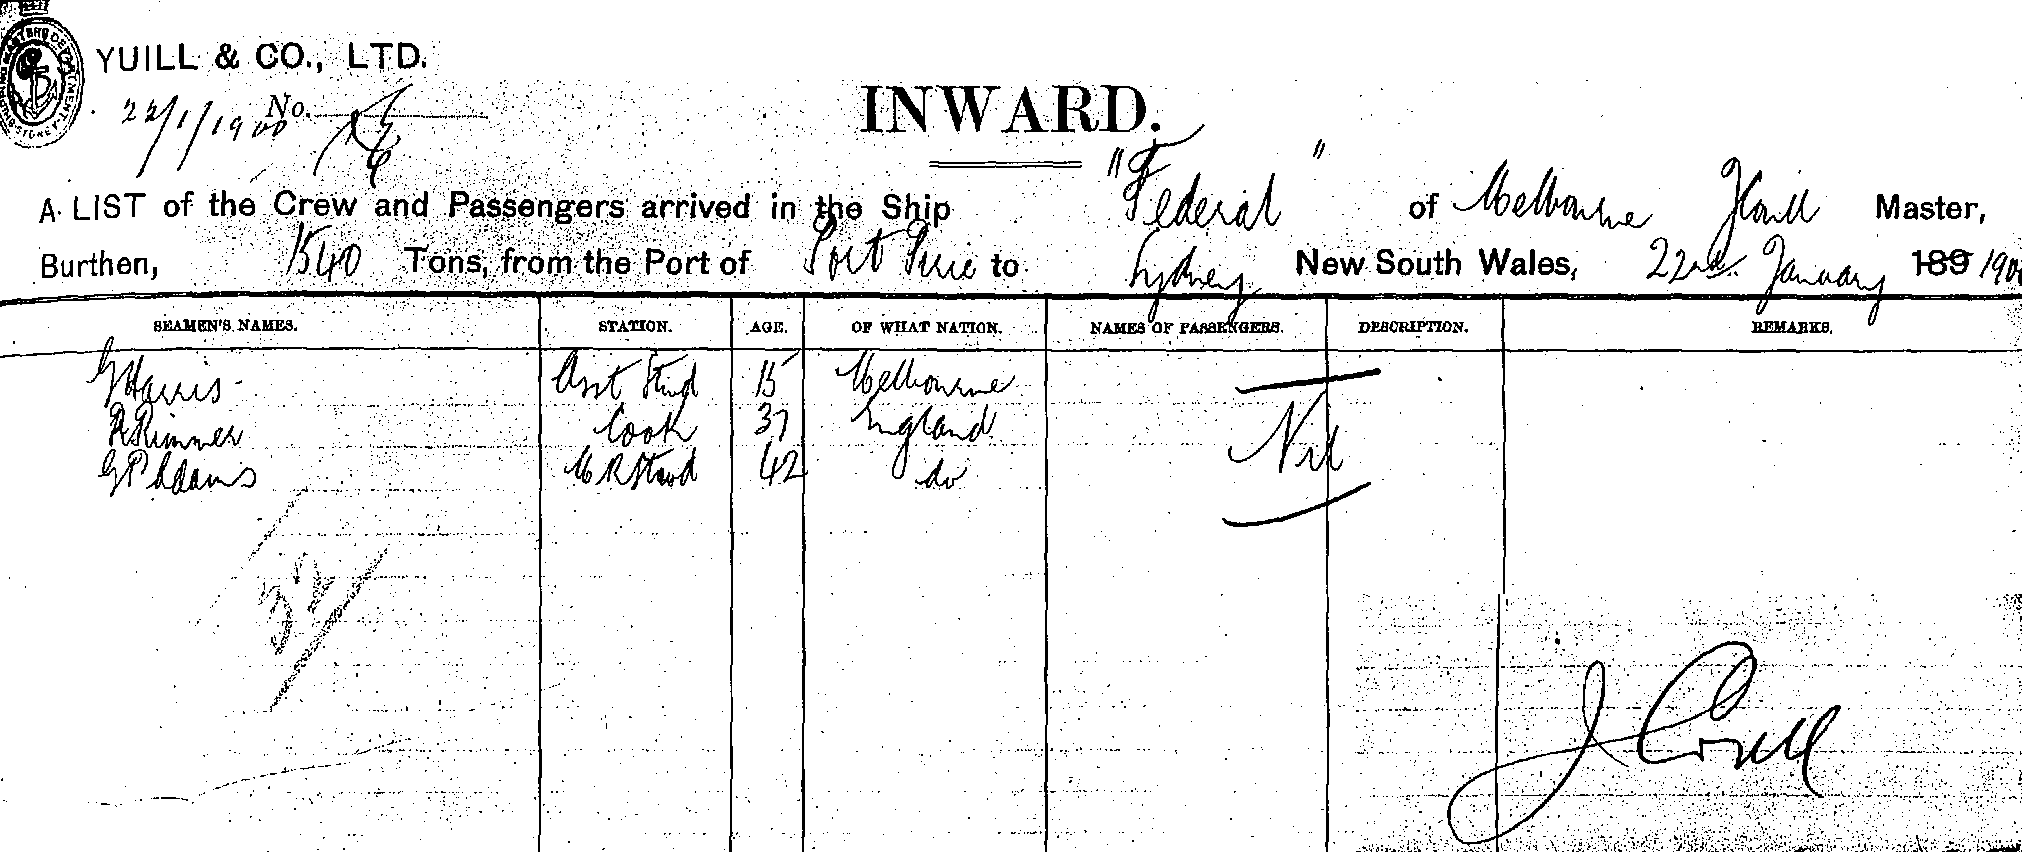 YUILL & CO., LTD.
22/1/1900 No.
INWARD.
A LIST of the Crew and Passengers arrived in the Ship "Federal" of Melbourne Master,
Burthen, 1540 Tons, from the Port of Port Pirie to Sydney New South Wales, 22nd January 189 1900
SEAMEN'S NAMES. STATION. AGE. OF WHAT NATION. NAMES OF PASSENGERS. DESCRIPTION. REMARKS.
G Harris Asst Stwd 15 Melbourne
R Rimmer Cook 37 England Nil
G P Adams M R Stwd 42 do
32